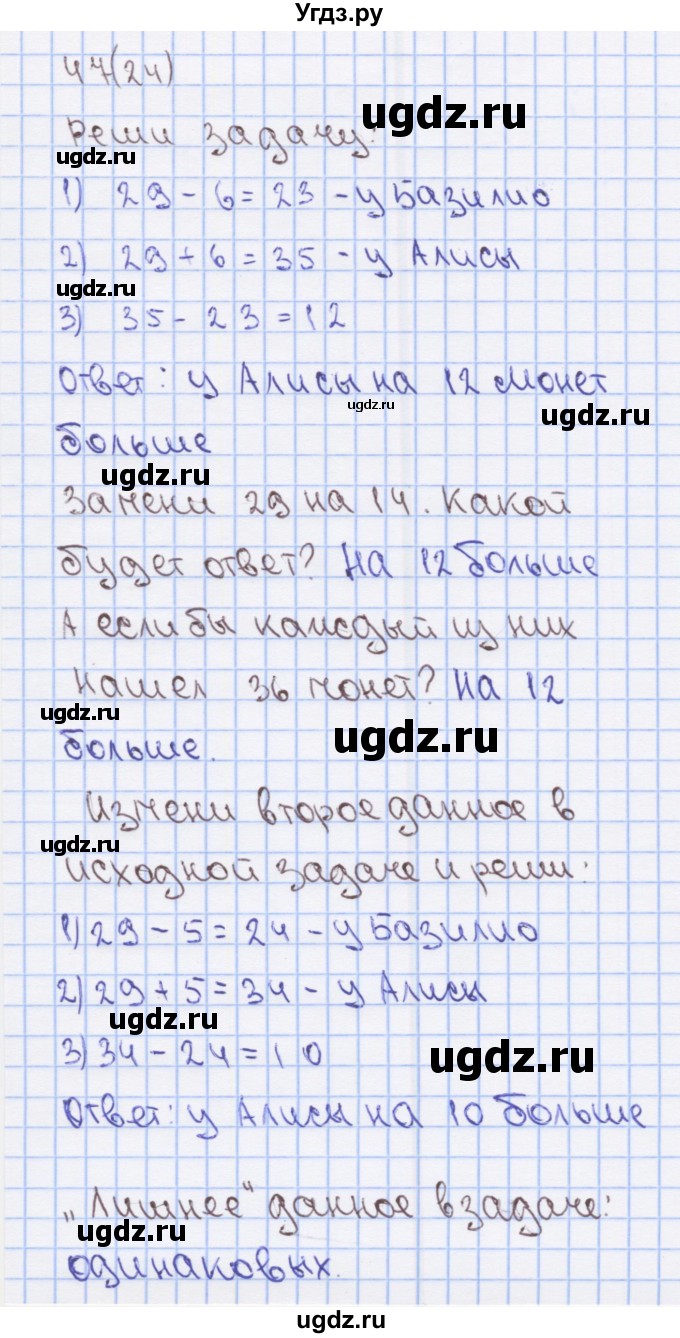 Угдз.ру
47(24)
ugdz.ru
Реши задачу:
ugdz.ru
1) 29 - 6 = 23 - у Базилио
2) 29 + 6 = 35 - у Алисы
ugdz.ru
3) 35 - 23 = 12
Ответ: у Алисы на 12 монет
ugdz.ru
ugdz.ru
больше
ugdz.ru
Замени 29 на 14. Какой
будет ответ? На 12 больше
А если бы каждый из них
нашел 36 монет? На 12
ugdz.ru
ugdz.ru
больше.
Измени второе данное в
ugdz.ru
исходной задаче и реши:
1) 29 - 5 = 24 - у Базилио
2) 29 + 5 = 34 - у Алисы
ugdz.ru
3) 34 - 24 = 10
ugdz.ru
Ответ: у Алисы на 10 больше
„Лишнее" данное в задаче:
ugdz.ru
одинаковых.
ugdz.ru